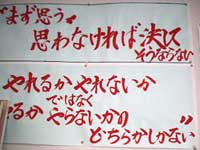 “まず思う”
思わなければ決して
そうならない
やれるか やれないか
ではなく
るか やらないかの
どちらかしかない”